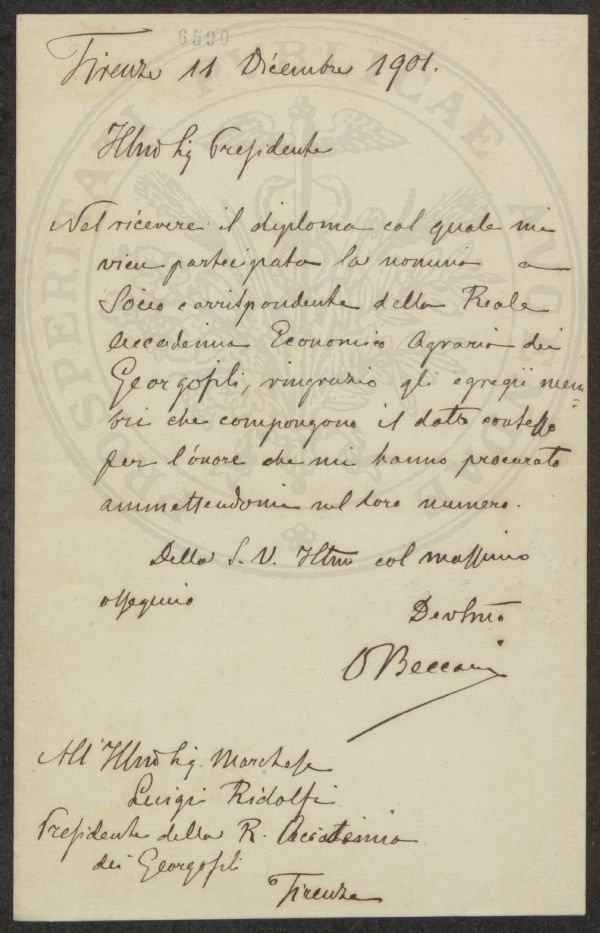 6590
Firenze 11 Dicembre 1901.
Illmo Sig Presidente
Nel ricevere il diploma col quale mi
vien partecipata la nomina a
Socio corrispondente della Reale
Accademia Economico Agraria dei
Georgofili, ringrazio gli egregii mem=
bri che compongono il dotto consesso
per l'onore che mi hanno procurato
ammettendomi nel loro numero.
Della S. V. Illma col massimo
ossequio
Devotmo
O Beccari
All' Illmo Sig. Marchese
Luigi Ridolfi
Presidente della R. Accademia
dei Georgofili
Firenze
PROSPERITATI PUBLICAE AUGENDAE